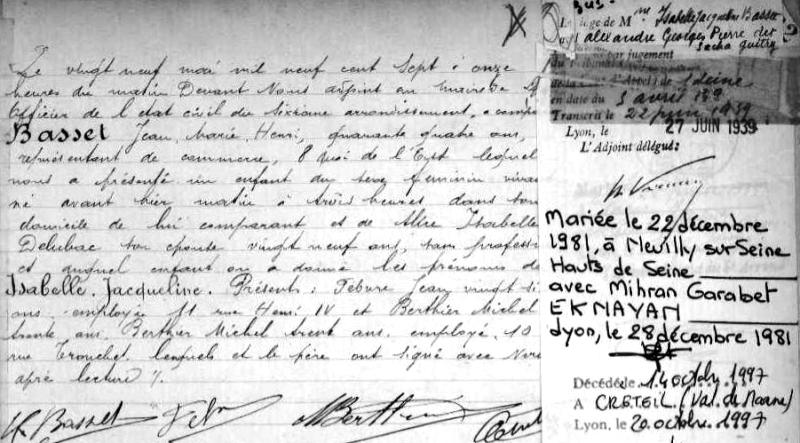 Le vingt neuf mai mil neuf cent sept à onze
heures du matin Devant Nous adjoint au maire de
Officier de l'état civil du sixième arrondissement, a comparu
Basset Jean Marie Henri, quarante quatre ans,
représentant de commerce, 8 Quai de l'Est lequel
nous a présenté un enfant du sexe féminin vivan
né avant hier matin à trois heures dans son
domicile de lui comparant et de Isabelle
Delubac son épouse vingt neuf ans, sans professi
et auquel enfant on a donné les prénoms de
Isabelle, Jacqueline. Présents: Febvre Jean vingt si
ans employé 11 rue Henri IV et Berthier Michel
trente ans. Berthier Michel trente ans, employé, 10
rue Tronchet, lesquels et le père ont signé avec Nous
après lecture %.
H Basset
MBerth
Isabelle Jacqueline Basset
Alexandre Georges Pierre dit
Sacha Guitry
par jugement
Seine
en date du 5 avril 139
Transcrit le 22 juin 1939
Lyon, le 27 JUIN 1939
L'Adjoint délégué:
Mariée le 22 décembre
1981, à Neuilly sur Seine
Hauts de Seine
avec Mihran Garabet
EKNAYAN
Lyon, le 28 décembre 1981
Décédée le 14 octobre 1997
A CRETEIL (Val de Marne)
Lyon, le 20 octobre 1997